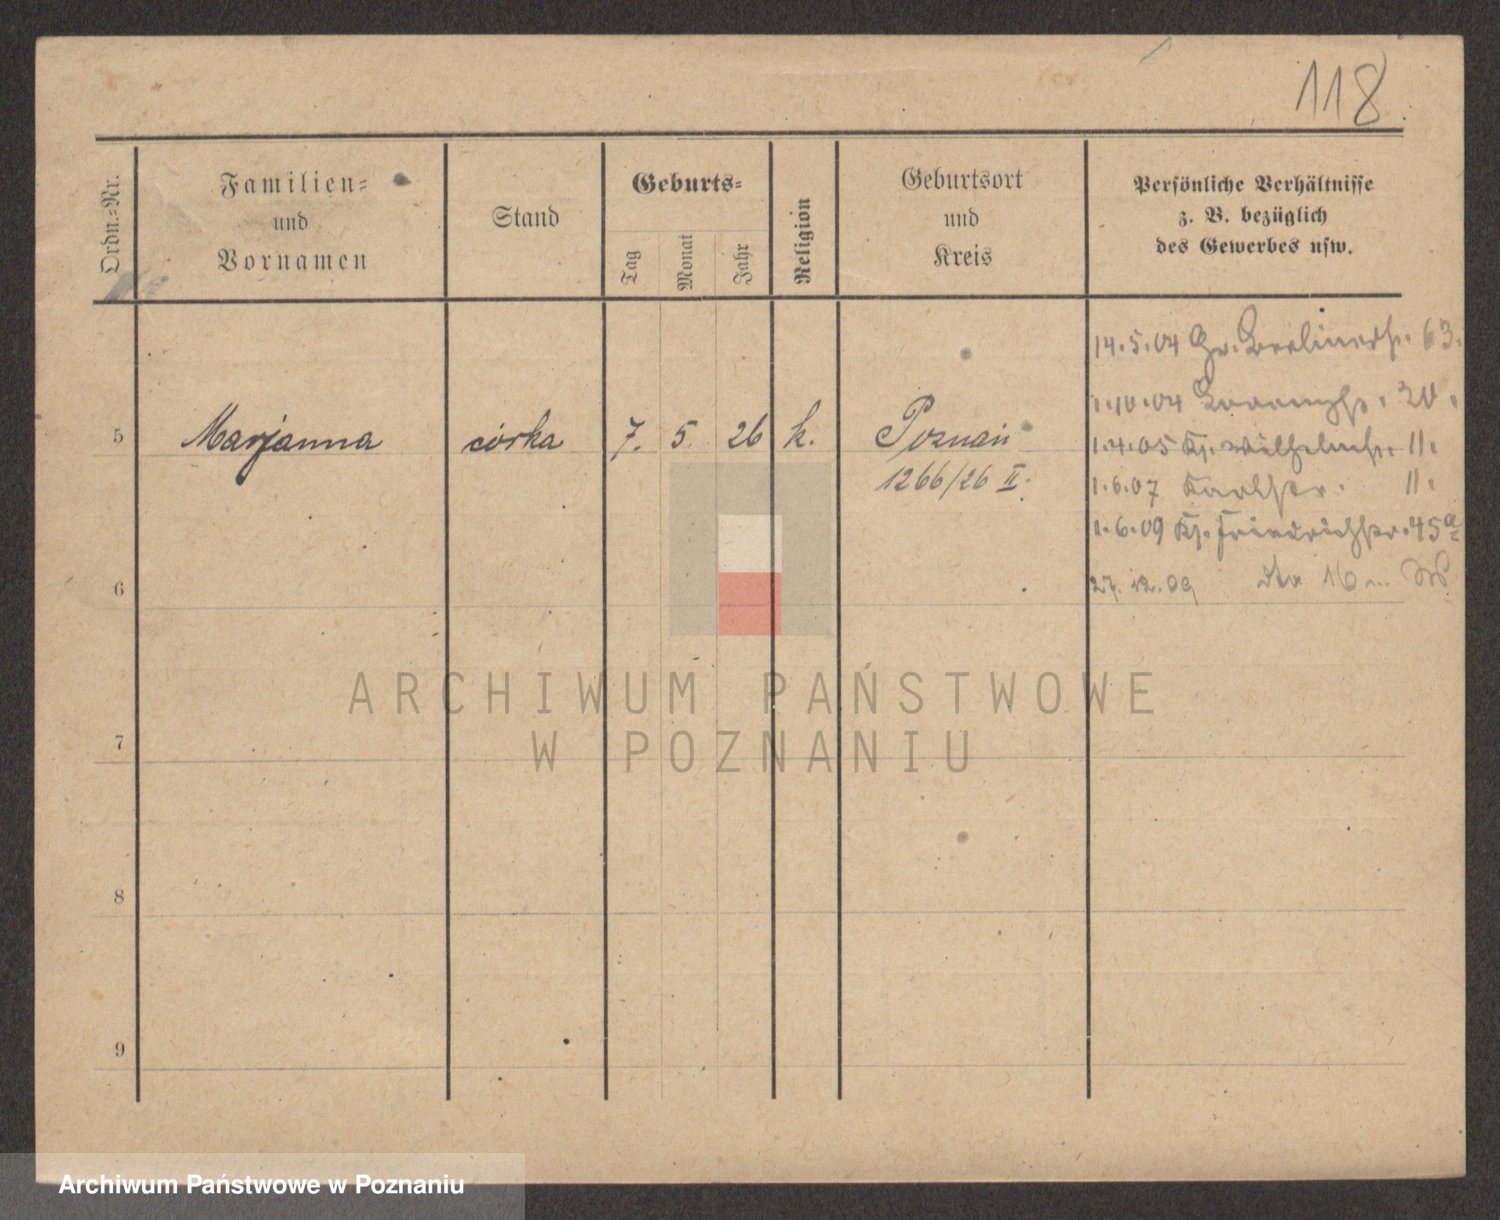 118
Ordn.=Nr.
Familien=
und
Vornamen
Stand
Geburts=
Tag
Monat
Jahr
Religion
Geburtsort
und
Kreis
Persönliche Verhältnisse
z. B. bezüglich
des Gewerbes usw.
14.5.04 Gr. Berlinerstr. 63.
1.10.04 20.
5 Marjanna córka 7. 5. 26 k. Poznań
1.4.05 Kr. Wilhelmstr. 11.
1266/26 II.
1.6.07 Karlstr. 11.
1.6.09 Kr. Friedrichstr. 45a
6
27.12.09 16
ARCHIWUM PAŃSTWOWE
W POZNANIU
7
8
9
Archiwum Państwowe w Poznaniu